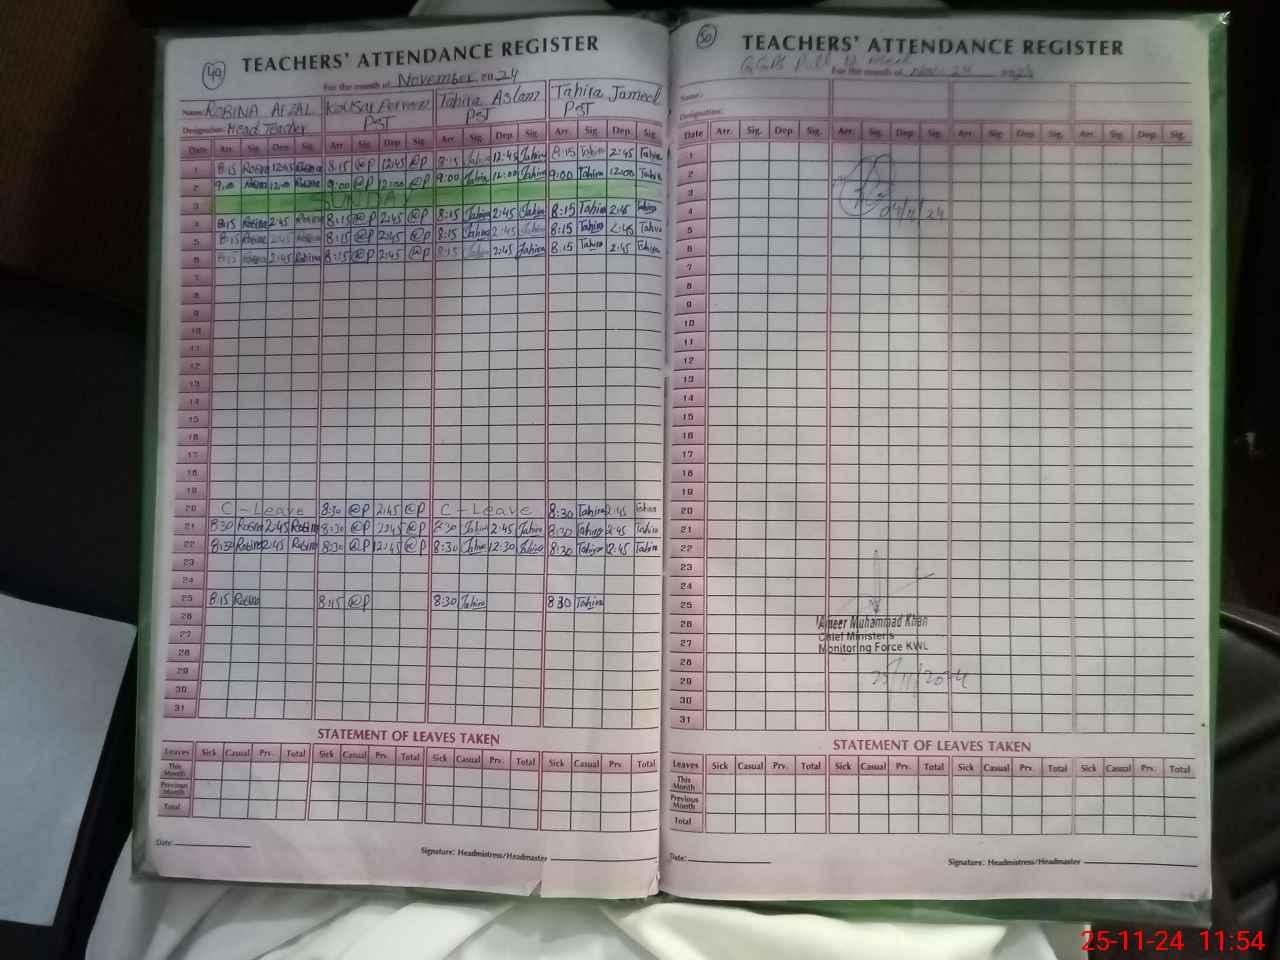 49
TEACHERS' ATTENDANCE REGISTER
For the month of November 2024
Name: ROBINA AFZAL Kousar Perveen Tahira Aslam Tahira Jameel
Designation: Head Teacher PST PST PST
Date Arr. Sig. Dep. Sig. Arr. Sig. Dep. Sig. Arr. Sig. Dep. Sig. Arr. Sig. Dep. Sig.
1 8:15 Robina 12:45 Robina 8:15 @P 12:45 @P 8:15 Tahira 12:45 Tahira 8:15 Tahira 2:45 Tahira
2 9:00 Robina 12:00 Robina 9:00 @P 12:00 @P 9:00 Tahira 12:00 Tahira 9:00 Tahira 12:00 Tahira
3 SUNDAY
4 8:15 Robina 2:45 Robina 8:15 @P 2:45 @P 8:15 Tahira 2:45 Tahira 8:15 Tahira 2:45 Tahira
5 8:15 Robina 2:45 Robina 8:15 @P 2:45 @P 8:15 Tahira 2:45 Tahira 8:15 Tahira 2:45 Tahira
6 8:15 Robina 2:45 Robina 8:15 @P 2:45 @P 8:15 Tahira 2:45 Tahira 8:15 Tahira 2:45 Tahira
7
8
9
10
11
12
13
14
15
16
17
18
19
20 C-Leave 8:30 @P 2:45 @P C-Leave 8:30 Tahira 2:45 Tahira
21 8:30 Robina 2:45 Robina 8:30 @P 2:45 @P 8:30 Tahira 2:45 Tahira 8:30 Tahira 2:45 Tahira
22 8:30 Robina 2:45 Robina 8:30 @P 12:45 @P 8:30 Tahira 12:30 Tahira 8:30 Tahira 2:45 Tahira
23
24
25 8:15 Robina 8:15 @P 8:30 Tahira 8:30 Tahira
26
27
28
29
30
31
STATEMENT OF LEAVES TAKEN
Leaves Sick Casual Prv. Total Sick Casual Prv. Total Sick Casual Prv. Total Sick Casual Prv. Total
This Month
Previous Month
Total
Date:
Signature: Headmistress/Headmaster
50
TEACHERS' ATTENDANCE REGISTER
GGPS
For the month of Nov. 24
Name:
Designation:
Date Arr. Sig. Dep. Sig. Arr. Sig. Dep. Sig. Arr. Sig. Dep. Sig. Arr. Sig. Dep. Sig.
1
2
3
4 04/11/24
5
6
7
8
9
10
11
12
13
14
15
16
17
18
19
20
21
22
23
24
25
26 Ameer Muhammad Khan
27 Chief Minister's
Monitoring Force KWL
28
29 25/11/2024
30
31
STATEMENT OF LEAVES TAKEN
Leaves Sick Casual Prv. Total Sick Casual Prv. Total Sick Casual Prv. Total Sick Casual Prv. Total
This Month
Previous Month
Total
Date:
Signature: Headmistress/Headmaster
25-11-24 11:54